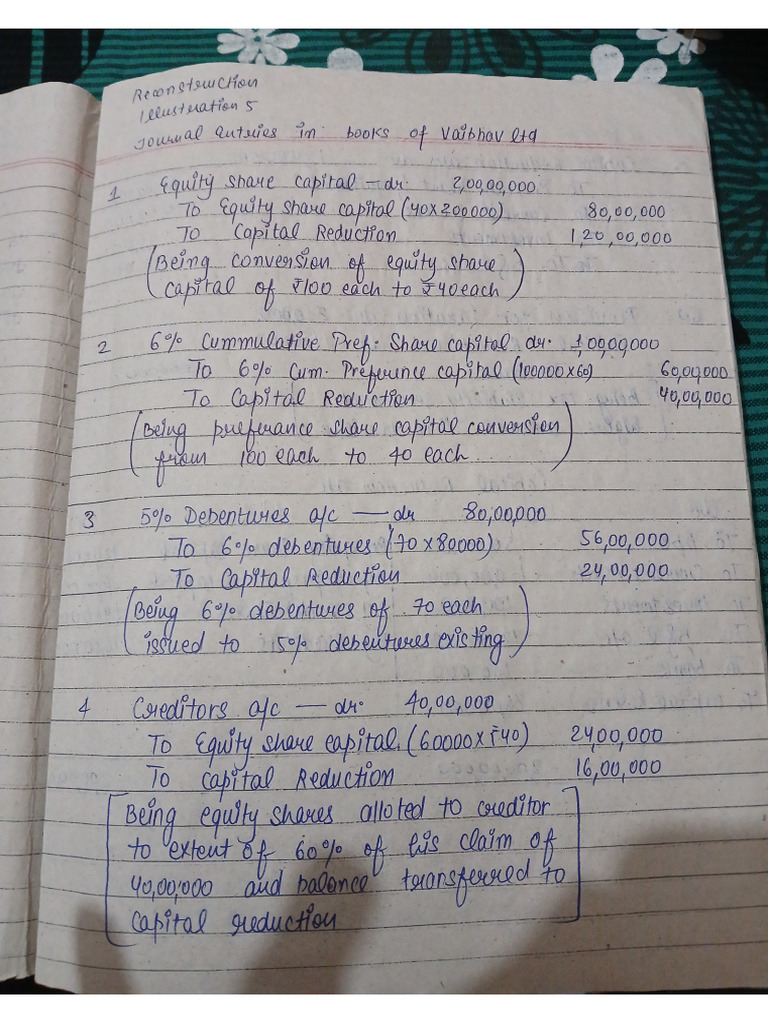 Reconstruction
Illustration 5
Journal Entries in books of Vaibhav ltd
1 Equity share capital — dr. 2,00,00,000
To Equity share capital (40 x 200000) 80,00,000
To Capital Reduction 1,20,00,000
(Being conversion of equity share
capital of ₹100 each to ₹40 each)
2 6% Cummulative Pref. Share capital dr. 1,00,00,000
To 6% Cum. Preference capital (100000 x 60) 60,00,000
To Capital Reduction 40,00,000
(Being preferance share capital conversion
from 100 each to 40 each)
3 5% Debentures a/c — dr 80,00,000
To 6% debentures (70 x 80000) 56,00,000
To Capital Reduction 24,00,000
(Being 6% debentures of 70 each
issued to 15% debentures existing)
4 Creditors a/c — dr. 40,00,000
To Equity share capital (60000 x ₹40) 2400,000
To Capital Reduction 16,00,000
[Being equity shares alloted to creditor
to extent of 60% of his claim of
40,00,000 and balance transferred to
capital reduction]